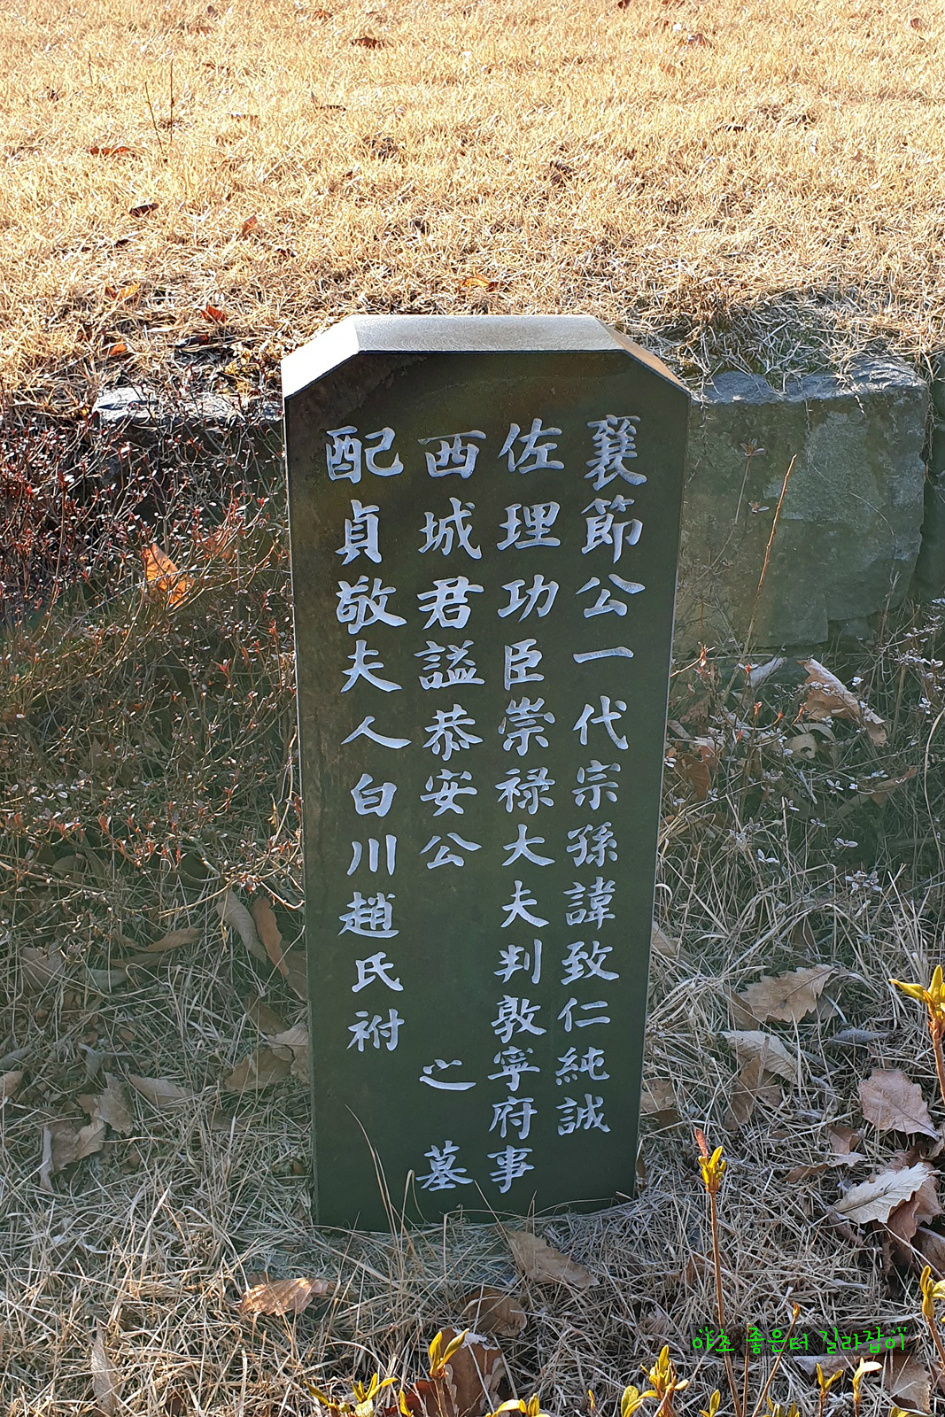 襄節公一代宗孫諱致仁純誠
佐理功臣崇禄大夫判敦寧府事
西城君謚恭安公 之 墓
配貞敬夫人白川趙氏祔
야초 좋은터 길라잡이